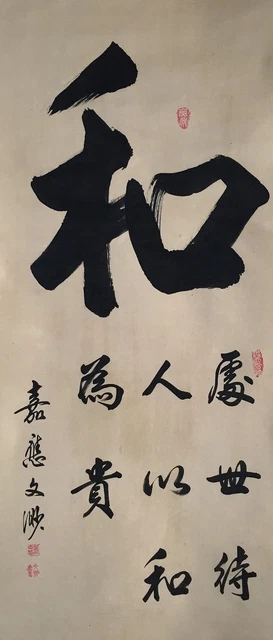 和
處世待
人以和
為貴
嘉應文渺